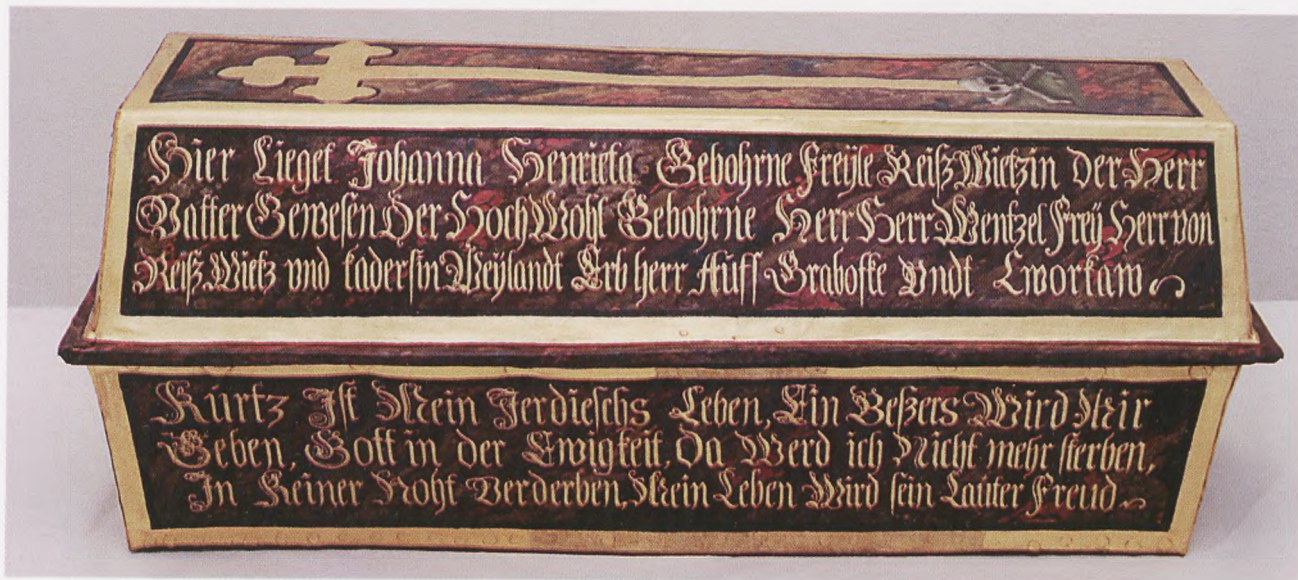 Hier Lieget Johanna Henrieta Gebohrne Freÿle ReißWietzin Der Herr
Vatter Gewesen Der HochWohl Gebohrne Herr Herr Wentzel Freÿ Herr von
Reiß Wietz vnd kadersin Weÿlandt Erb herr Auff Grabofke Vndt Cworkaw
Kurtz Ist Mein Jerdieschs Leben, Ein Beßers Wird Mir
Geben, Gott in der Ewigkeit, Da Werd ich Nicht mehr sterben,
In Keiner Noht Verderben, Mein Leben Wird sein Lauter Freud